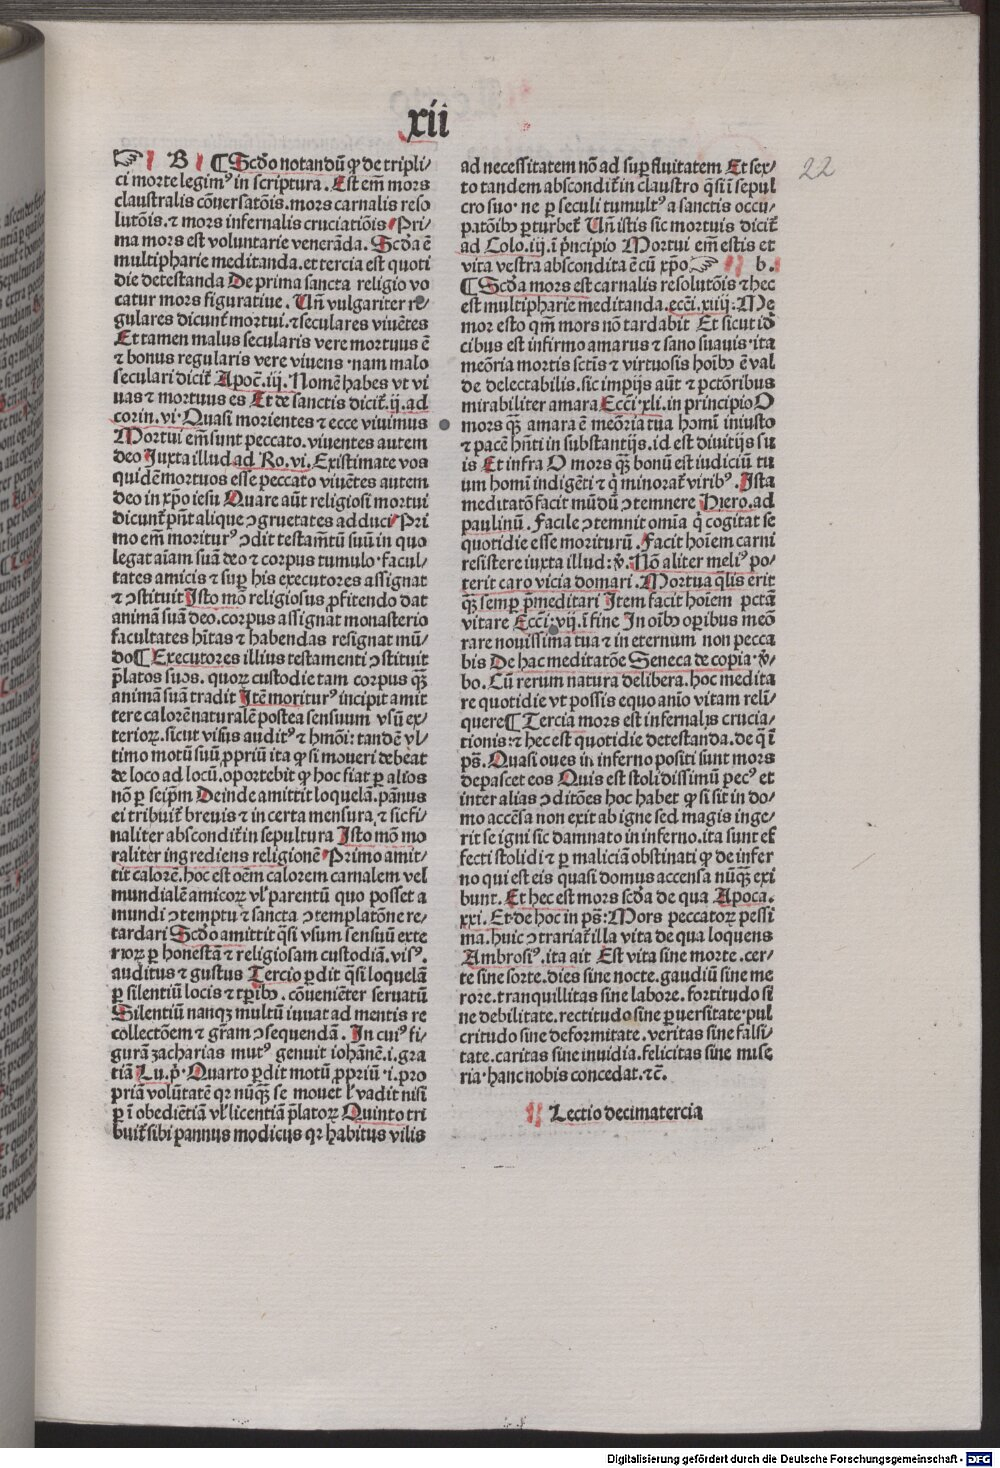 xii
22
☞ B ¶ Scdo notandū ꝙ de tripli/
ci morte legimꝰ in scriptura. Est em̄ mors
claustralis cōuersatōis. mors carnalis reso
lutōis. ⁊ mors infernalis cruciatiōis Pri/
ma mors est voluntarie venerāda. Scd̄a ē
multipharie meditanda. et tercia est quoti
die detestanda De prima sancta religio vo
catur mors figuratiue. Un̄ vulgariter re/
gulares dicunt᷑ mortui. ⁊ seculares viuētes
Et tamen malus secularis vere mortuus ē
⁊ bonus regularis vere viuens · nam malo
seculari dicit᷑ Apoc̄. iij. Nomē habes vt vi
uas ⁊ mortuus es Et de sanctis dicit᷑. ij. ad
corin. vi · Quasi morientes ⁊ ecce viuimus
Mortui em̄ sunt peccato. viuentes autem
deo Juxta illud ad Ro. vi. Existimate vos
quidē mortuos esse peccato viuētes autem
deo in xp̄o iesu Quare aūt religiosi mortui
dicunt᷑ pn̄t alique ↄgruetates adduci Pri
mo em̄ moriturꝰ ↄdit testam̄tū suū in quo
legat aīam suā deo ⁊ corpus tumulo · facul/
tates amicis ⁊ suꝑ his executores assignat
⁊ ↄstituit Isto mō religiosus ꝓfitendo dat
animā suā deo. corpus assignat monasterio
facultates hītas ⁊ habendas resignat mū/
do ¶ Executores illius testamenti ↄstituit
p̄latos suos. quoꝝ custodie tam corpus qꝫ̄
animā suā tradit Itē moriturꝰ incipit amit
tere calorē naturalē postea sensuum vsū ex/
terioꝝ. sicut visus auditꝰ ⁊ hmōi: tandē vl/
timo motū suū ꝓpriū ita ꝙ si moueri debeat
de loco ad locū. oportebit ꝙ hoc fiat ꝑ alios
nō ꝑ seip̄m Deinde amittit loquelā. pānus
ei tribuit᷑ breuis ⁊ in certa mensura. ⁊ sic fi/
naliter abscondit᷑ in sepultura Isto mō mo
raliter ingrediens religionē Primo amit/
tit calorē. hoc est oēm calorem carnalem vel
mundialē amicoꝝ vl̓ parentū quo posset a
mundi ↄtemptu ⁊ sancta ↄtemplatōne re/
tardari Scdo amittit q̄si vsum sensuū exte
rioꝝ ꝑ honestā ⁊ religiosam custodiā. visꝰ.
auditus ⁊ gustus Tercio ꝑdit q̄si loquelā
ꝑ silentiū locis ⁊ tꝑibꝰ. cōueniēter seruatū
Silentiū nanqꝫ multū iuuat ad mentis re
collectōem ⁊ gr̄am ↄsequendā. In cuiꝰ fi/
gurā zacharias mutꝰ genuit iohānē. i. gra
tiā Lu. p̄ · Quarto ꝑdit motū ꝓpriū · i. pro
priā volūtatē qꝛ nūqꝫ̄ se mouet l̓ vadit nisi
ꝑ ī obediētiā vl̓ licentiā p̄latoꝝ Quinto tri
buit᷑ sibi pannus modicus qꝛ habitus vilis
ad necessitatem nō ad suꝑfluitatem Et sex/
to tandem abscondit᷑ in claustro q̄si ī sepul
cro suo · ne ꝑ seculi tumultꝰ a sanctis occu/
patōibꝰ ꝑturbet᷑ Un̄ istis sic mortuis dicit᷑
ad Colo. iij. ī p̄ncipio Mortui em̄ estis et
vita vestra abscondita ē cū xp̄o ☞ b.
¶ Scd̄a mors est carnalis resolutōis ⁊ hec
est multipharie meditanda. ecc̄i. xiiij: Me
mor esto qm̄ mors nō tardabit Et sicut id̄
cibus est infirmo amarus ⁊ sano suauis · ita
meōria mortis sctīs ⁊ virtuosis hoībꝰ ē val
de delectabilis. sic impijs aūt ⁊ pctōribus
mirabiliter amara Ecc̄i · xli. in principio O
mors qꝫ̄ amara ē meōria tua homī iniusto
⁊ pacē hn̄ti in substantijs. id est diuitijs su
is Et infra O mors qꝫ̄ bonū est iudiciū tu
um homī indigēti ⁊ q̇ minorat᷑ viribꝰ. Ista
meditatō facit mūdū ↄtemnere Hiero. ad
paulinū. Facile ↄtemnit omīa q̇ cogitat se
quotidie esse moriturū. Facit hoīem carni
resistere iuxta illud: v̄. Nō aliter meliꝰ po/
terit caro vicia domari. Mortua q̄lis erit
qꝫ̄ semꝑ p̄meditari Item facit hoīem pctā
vitare Ecc̄i: vij. ī fine In oībꝰ oꝑibus meō
rare nouissima tua ⁊ in eternum non pecca
bis De hac meditatōe Seneca de copia · v̄/
bo. Cū rerum natura delibera. hoc medita
re quotidie vt possis equo anio vitam relī/
quere ¶ Tercia mors est infernalis crucia/
tionis: ⁊ hec est quotidie detestanda. de q̄ ī
ps̄. Quasi oues in inferno positi sunt mors
depascet eos Quis est stolidissimū pecꝰ et
inter alias ↄditōes hoc habet ꝙ si sit in do/
mo accēsa non exit ab igne sed magis inge/
rit se igni sic damnato in inferno. ita sunt ef
fecti stolidi ⁊ ꝑ maliciā obstinati ꝙ de infer
no qui est eis quasi domus accensa nūqꝫ̄ exi
bunt. Et hec est mors scd̄a de qua Apoca.
xxi. Et de hoc in ps̄: Mors peccatoꝝ pessi
ma. huic ↄtrariat᷑ illa vita de qua loquens
Ambrosiꝰ. ita ait Est vita sine morte. cer/
te sine sorte. dies sine nocte. gaudiū sine me
rore. tranquillitas sine labore. fortitudo si
ne debilitate. rectitudo sine ꝑuersitate · pul
critudo sine deformitate. veritas sine falsi/
tate. caritas sine inuidia. felicitas sine mise
ria · hanc nobis concedat. ⁊c̄.
Lectio decimatercia
Digitalisierung gefördert durch die Deutsche Forschungsgemeinschaft - DFG